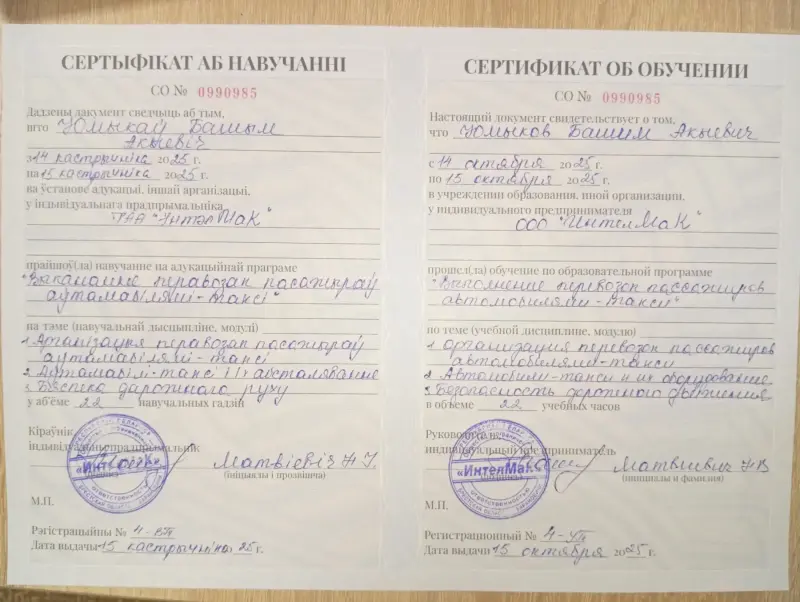 СЕРТЫФІКАТ АБ НАВУЧАННІ
СО № 0990985
Дадзены дакумент сведчыць аб тым,
што Юмыкаў Башым
Акыевіч
з 14 кастрычніка 2025 г.
па 15 кастрычніка 2025 г.
ва ўстанове адукацыі, іншай арганізацыі,
у індывідуальнага прадпрымальніка
ТАА "ІнтэлМаК"
прайшоў(ла) навучанне па адукацыйнай праграме
"Выкананне перавозак пасажыраў
аўтамабілямі-таксі"
па тэме (навучальнай дысцыпліне, модулі)
1 Арганізацыя перавозак пасажыраў
аўтамабілямі-таксі
2 Аўтамабілі-таксі і іх абсталяванне
3 Бяспека дарожнага руху
у аб'ёме 22 навучальных гадзін
Кіраўнік
індывідуальны прадпрымальнік
«ИнтелМаК»
Матвіевіч Н.
(ініцыялы і прозвішча)
М.П.
Рэгістрацыйны № 4-
Дата выдачы 15 кастрычніка 2025 г.
СЕРТИФИКАТ ОБ ОБУЧЕНИИ
СО № 0990985
Настоящий документ свидетельствует о том,
что Юмыков Башим Акыевич
с 14 октября 2025 г.
по 15 октября 2025 г.
в учреждении образования, иной организации,
у индивидуального предпринимателя
ООО "ИнтелМаК"
прошел(ла) обучение по образовательной программе
"Выполнение перевозок пассажиров
автомобилями-такси"
по теме (учебной дисциплине, модулю)
1 Организация перевозок пассажиров
автомобилями-такси
2 Автомобили-такси и их оборудование
3 Безопасность дорожного движения
в объеме 22 учебных часов
Руководитель
индивидуальный предприниматель
«ИнтелМаК»
Матвиевич Н.В
(инициалы и фамилия)
М.П.
Регистрационный № 4-
Дата выдачи 15 октября 2025 г.